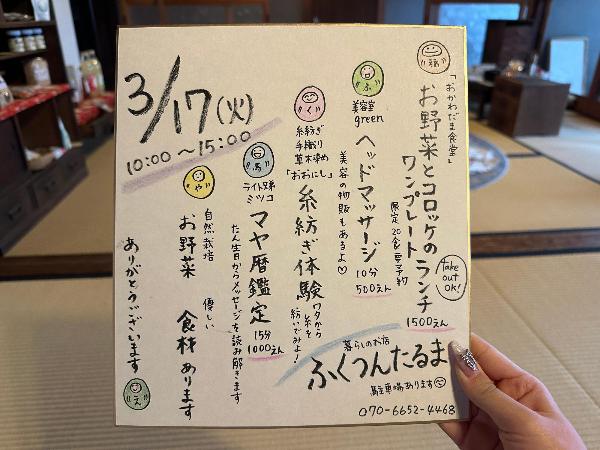 3/17(火)
10:00～15:00
福
「おかわだま食堂」
お野菜とコロッケのランチ
ワンプレート
限定20食要予約
Take out OK!
1500えん
ふ
美容室
green
ヘッドマッサージ
10分
500えん
美容の物販もあるよ♡
く
糸紡ぎ
手織り
草木染め
「おおにし」
糸紡ぎ体験
ワタから
糸を
紡いでみよ!
ち
ライト兄弟
ミツコ
マヤ暦鑑定
15分
1000えん
たん生日からメッセージを読み解きます
や
自然栽培
お野菜
優しい
食材あります
ありがとうございます
え
暮らしのお店
ふくつんたるま
駐車場あります
070-6652-4468